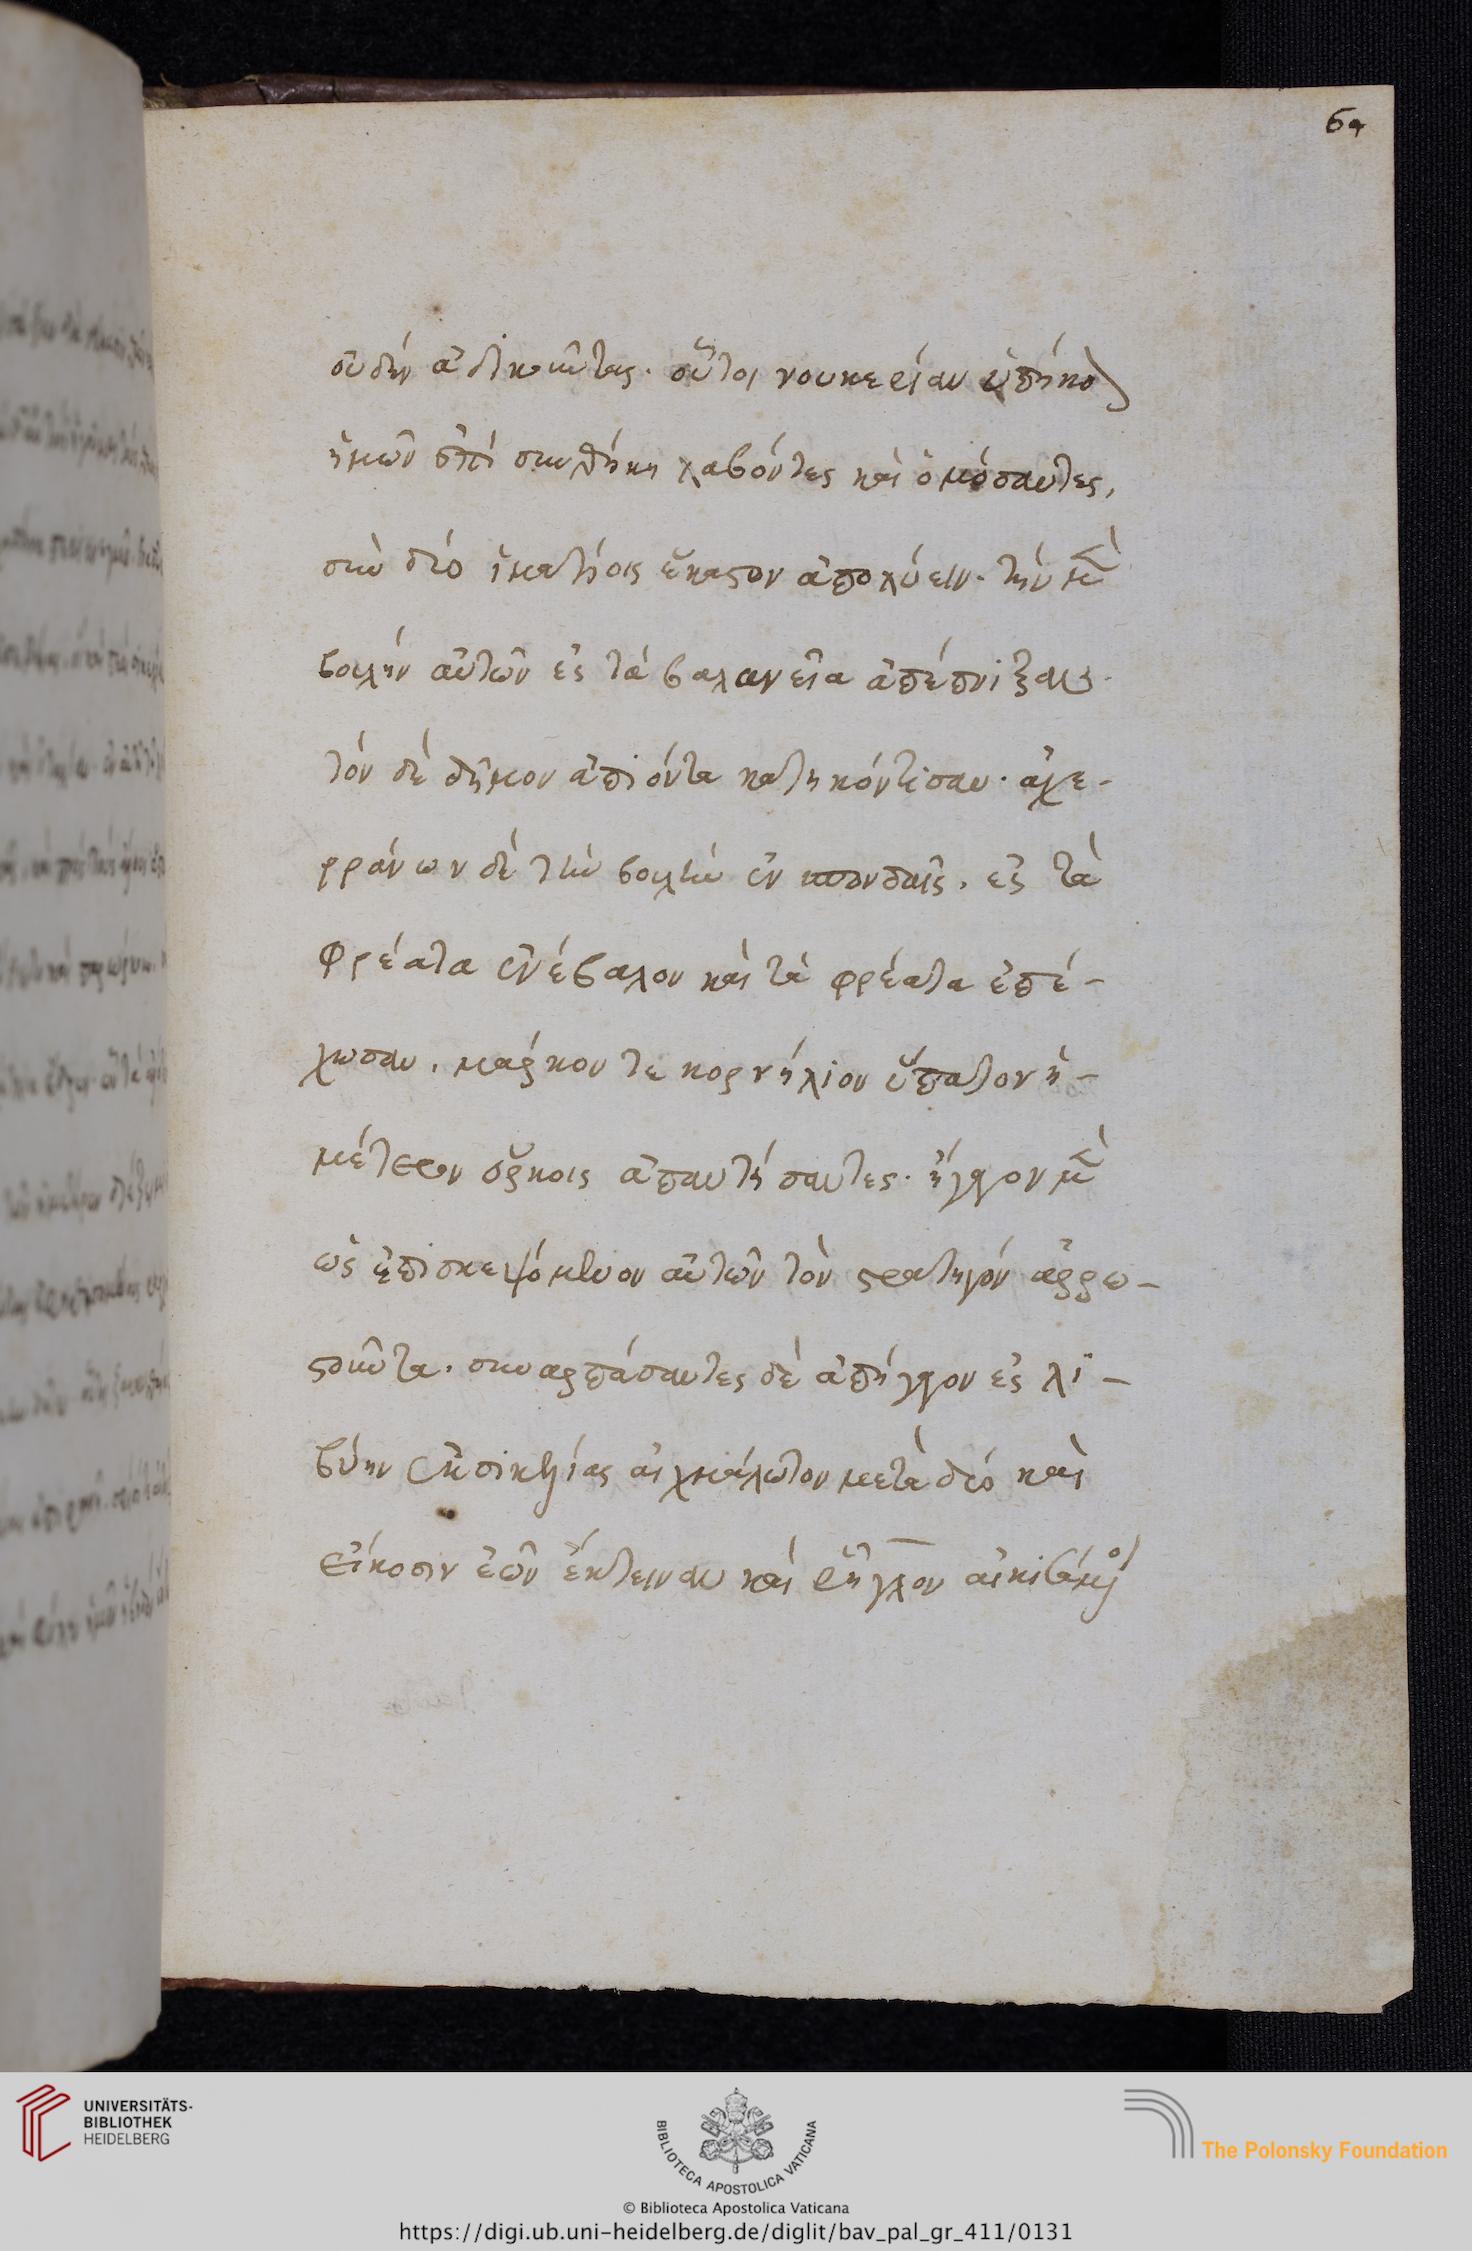 64
οὐδὲν ἀδικοῦντας. οὗτοι νουκερίαν ὑπήκο
ἡμῶν ἐπὶ συνθήκη λαβόντες καὶ ὀμόσαντες,
σὺν δύο ἱματίοις ἕκαστον ἀπολύειν. τὴν μὲν
βουλὴν αὐτῶν ἐς τὰ βαλανεῖα ἀπέπνιξαν.
τὸν δὲ δῆμον ἀπιόντα κατηκόντισαν. ἀχε-
ρράνων δὲ τὴν βουλὴν ἐν σπονδαῖς, ἐς τὰ
φρέατα ἐνέβαλον καὶ τὰ φρέατα ἐπέ-
χωσαν, μάρκον τε κορνήλιον ὕπατον ἡ-
μέτερον ὅρκοις ἀπαντήσαντες. ἤγαγον μὲν
ὡς ἐπισκεψόμενον αὐτῶν τὸν στρατηγὸν ἀρρω-
στοῦντα. συναρπάσαντες δὲ ἀπήγαγον ἐς λι-
βύην ἐκ σικελίας αἰχμάλωτον μετὰ δύο καὶ
εἴκοσιν νεῶν ἔκτειναν καὶ ῥήγλον αἰκισάμενοι
UNIVERSITÄTS-
BIBLIOTHEK
HEIDELBERG
BIBLIOTECA APOSTOLICA VATICANA
The Polonsky Foundation
© Biblioteca Apostolica Vaticana
https://digi.ub.uni-heidelberg.de/diglit/bav_pal_gr_411/0131